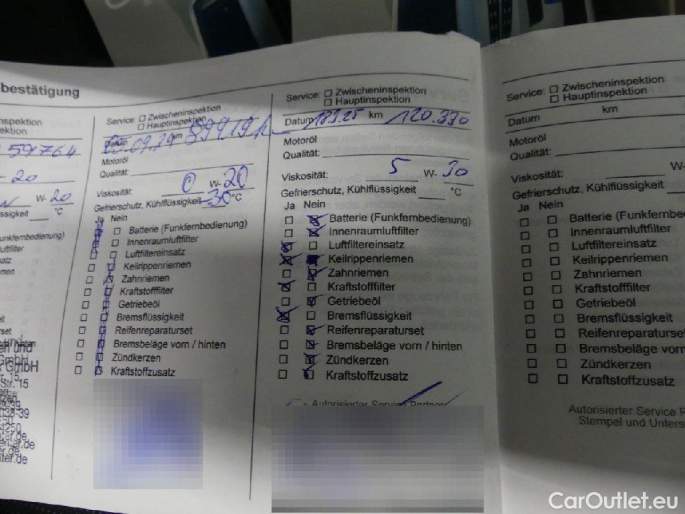 bestätigung
nspektion
ektion
59764
20
W- 20
°C
unkfernbedienung)
filter
satz
riemen
Service: Zwischeninspektion
Hauptinspektion
km
Motoröl
Qualität:
Viskosität: 0 W- 20
Gefrierschutz, Kühlflüssigkeit -30 °C
Ja Nein
Batterie (Funkfernbedienung)
Innenraumluftfilter
Luftfiltereinsatz
Keilrippenriemen
Zahnriemen
Kraftstofffilter
Getriebeöl
Bremsflüssigkeit
Reifenreparaturset
Bremsbeläge vorn / hinten
Zündkerzen
Kraftstoffzusatz
Service: Zwischeninspektion
Hauptinspektion
Datum km 120.330
Motoröl
Qualität:
Viskosität: 5 W- 30
Gefrierschutz, Kühlflüssigkeit °C
Ja Nein
Batterie (Funkfernbedienung)
Innenraumluftfilter
Luftfiltereinsatz
Keilrippenriemen
Zahnriemen
Kraftstofffilter
Getriebeöl
Bremsflüssigkeit
Reifenreparaturset
Bremsbeläge vorn / hinten
Zündkerzen
Kraftstoffzusatz
Autorisierter Service Partner
Service: Zwischeninspektion
Hauptinspektion
Datum km
Motoröl
Qualität:
Viskosität: W-
Gefrierschutz, Kühlflüssigkeit
Ja Nein
Batterie (Funkfernbe
Innenraumluftfilter
Luftfiltereinsatz
Keilrippenriemen
Zahnriemen
Kraftstofffilter
Getriebeöl
Bremsflüssigkeit
Reifenreparaturset
Bremsbeläge vorn
Zündkerzen
Kraftstoffzusatz
Autorisierter Service P
Stempel und Unters
CarOutlet.eu